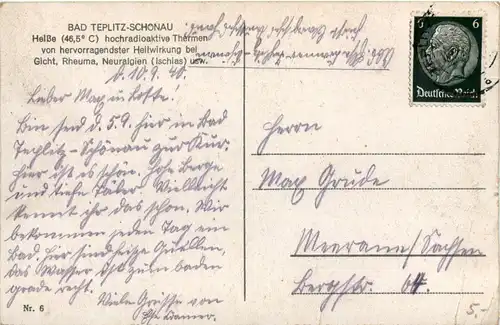 BAD TEPLITZ-SCHÖNAU
Heiße (46,5° C) hochradioaktive Thermen
von hervorragendster Heilwirkung bei
Gicht, Rheuma, Neuralgien (Ischias) usw.
d. 10.9.40.
Lieber Max u. Lotte!
Bin seid d. 5.9. hier in Bad
Teplitz-Schönau zur Kur.
Hier ist es schön. Hohe Berge
und tiefe Täler. Vielleicht
kennt ihr das schon. Wir
bekommen jeden Tag ein
Bad. Hier sind heiße Quellen,
das Wasser ist zum baden
grade recht.
Viele Grüsse von
Nr. 6
6 6
Deutsches Reich
Herrn
Max Grude
Meerane/Sachsen
Bergstr. 64.
5,-